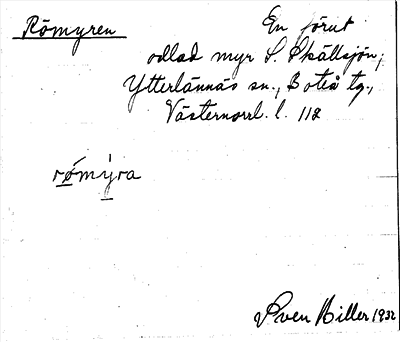 Römyren
En förut
odlad myr S. Skällsjön,
Ytterlännäs sn., Boteå tg.,
Västernorrl. l. 112
rømýra
Sven Hiller 1932